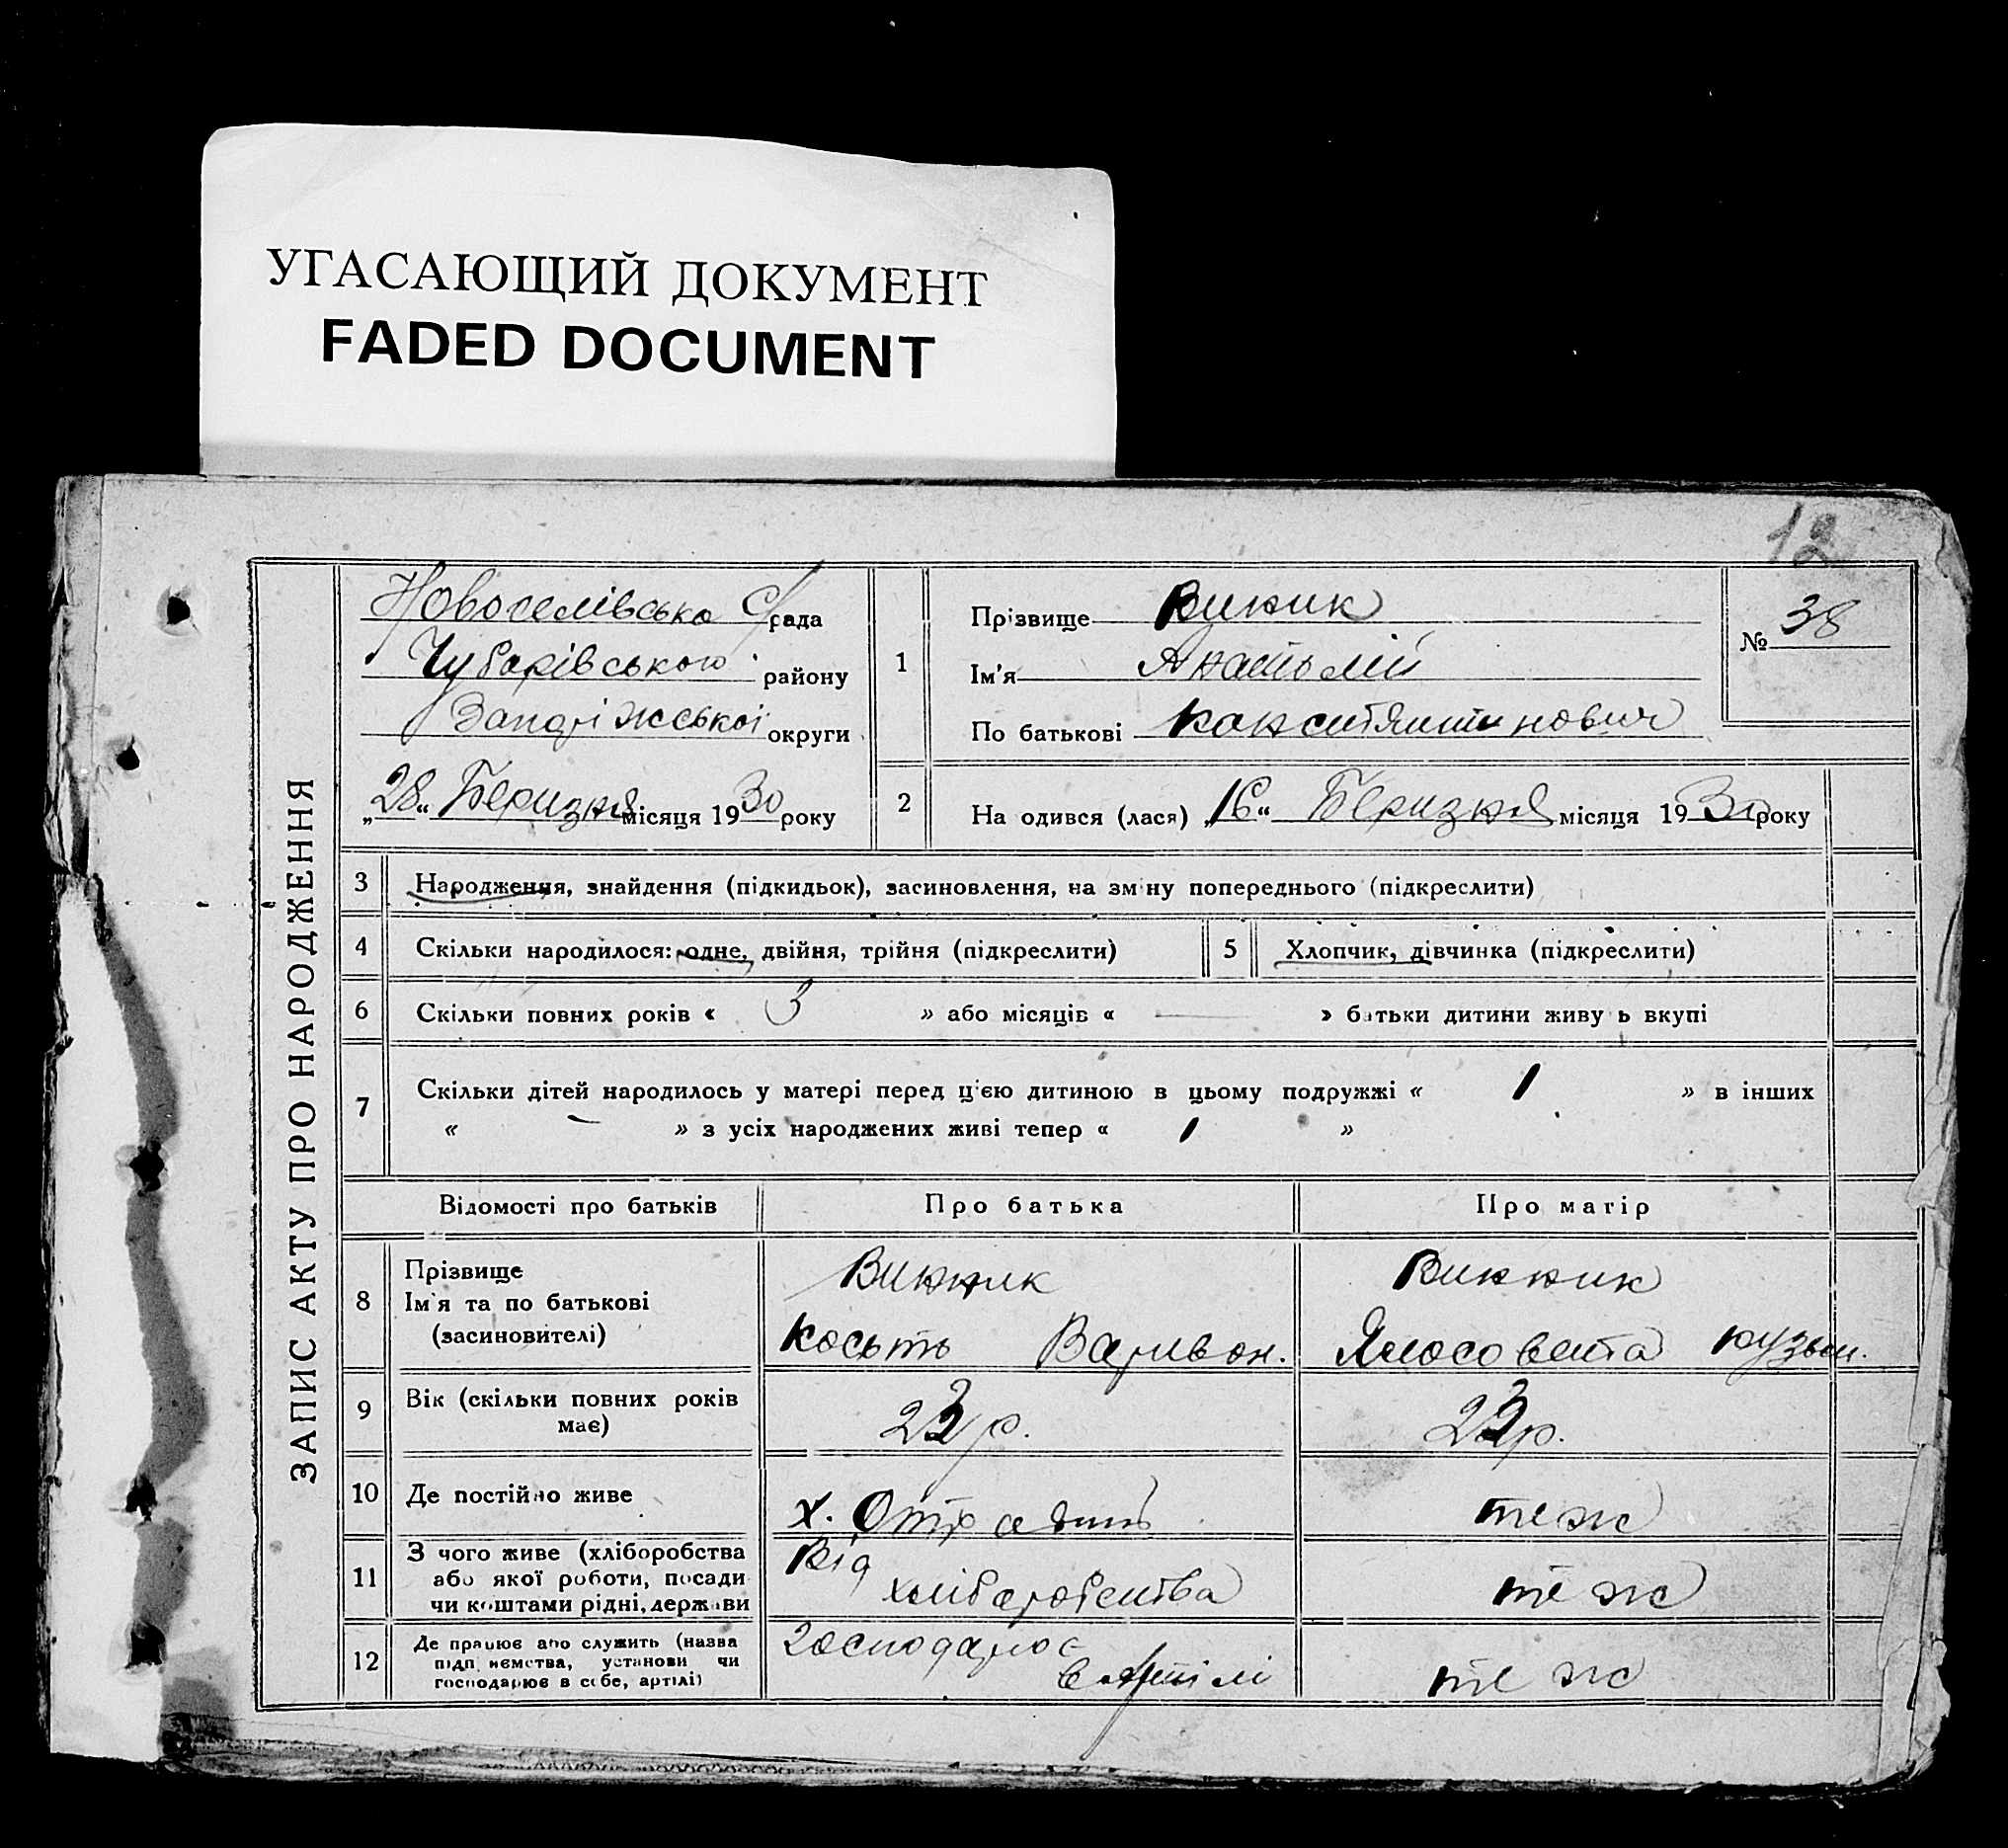 УГАСАЮЩИЙ ДОКУМЕНТ
FADED DOCUMENT
12
ЗАПИС АКТУ ПРО НАРОДЖЕННЯ
Новоселівська С/рада
Чубарівського району
Запоріжської округи
„28“ Беризня місяця 1930 року
1
Прізвище Виник
Ім'я Анатолій
По батькові Константинович
№ 38
2
На одився (лася) „16“ Беризня місяця 1930 року
3 Народження, знайдення (підкидьок), засиновлення, на зміну попереднього (підкреслити)
4 Скільки народилося: одне, двійня, трійня (підкреслити)
5 Хлопчик, дівчинка (підкреслити)
6 Скільки повних років « 3 » або місяців « — » батьки дитини живу ь вкупі
7 Скільки дітей народилось у матері перед цією дитиною в цьому подружжі « 1 » в інших
« — » з усіх народжених живі тепер « 1 »
Відомості про батьків Про батька Про матір
8 Прізвище
Ім'я та по батькові
(засиновителі)
Винник
Косьть Варивон.
Винник
Ялосовета кузьм.
9 Вік (скільки повних років
має)
23 р.
22 р.
10 Де постійно живе
х. Отрадний
теж
11 З чого живе (хліборобства
або якої роботи, посади
чи коштами рідні, держави
Від
хліборобства
теж
12 Де працює або служить (назва
підприємства, установи чи
господарює в себе, артілі)
господарює
в артілі
теж